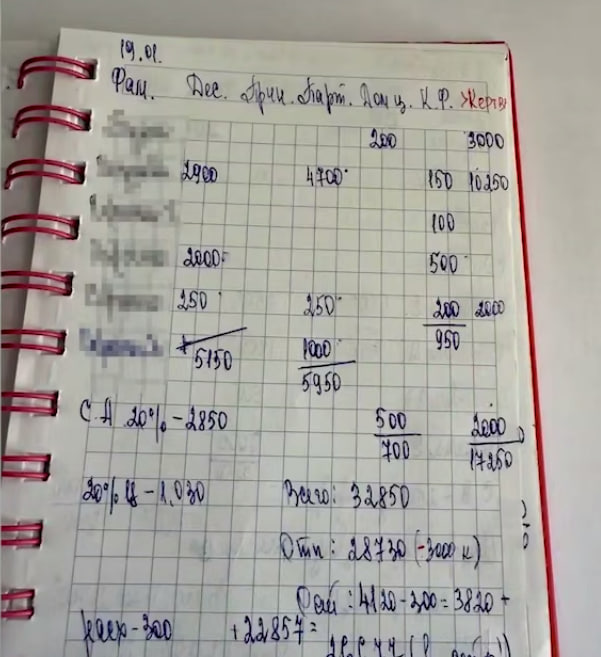 19.01.
Фам. Дес. Прин. Парт. Помц. К.Ф. Жертв
200 3000
2900 4700 150 10250
100
2000 500
250 250 200 2000
950
5150 1000
5950
С.А 20% - 2850 500 2000
700 17250
20% Ц - 1,030 Всего: 32850
Отп: 28730 (-3000 н)
Рай: 4120-300=3820+
расх-300 +22857=